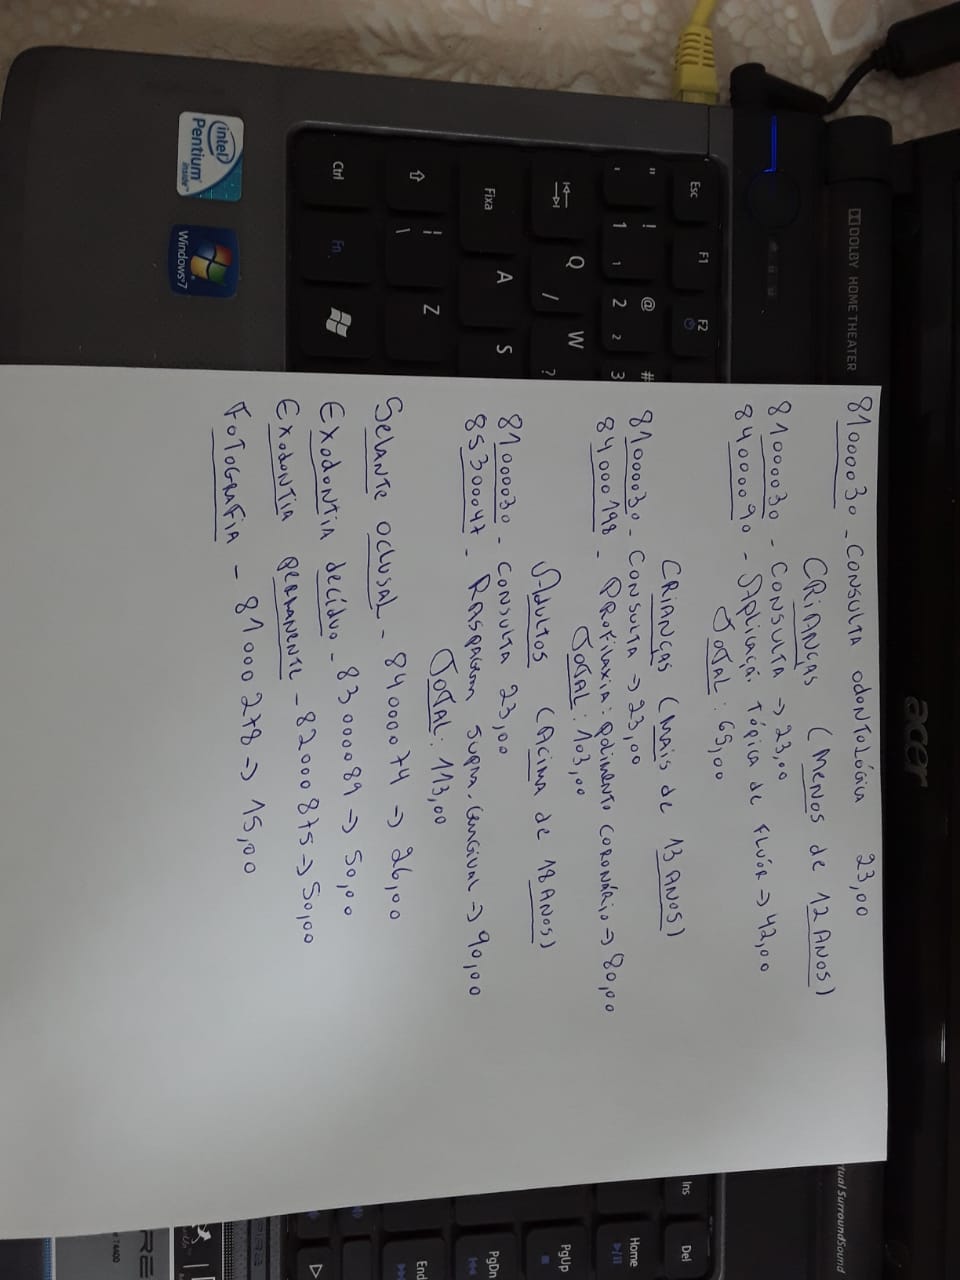 81000030 - CONSULTA ODONTOLÓGICA 23,00
CRIANÇAS (MENOS de 12 ANOS)
81000030 - CONSULTA → 23,00
84000090 - Aplicaçã. Tópica de FLÚOR → 42,00
TOTAL: 65,00
CRIANÇAS (MAIS de 13 ANOS)
81000030 - CONSULTA → 23,00
84000198 - PROFILAXIA: POLIMENTO CORONÁRIO → 80,00
TOTAL: 103,00
Adultos (Acima de 18 ANOS)
81000030 - CONSULTA 23,00
85300047 - RASPAGEM SUPRA-GENGIVAL → 90,00
TOTAL: 113,00
SELANTE OCLUSAL - 84000074 → 26,00
EXODONTIA decíduo - 83000089 → 50,00
EXODONTIA PERMANENTE - 82000875 → 50,00
FOTOGRAFIA - 81000278 → 15,00
DOLBY HOME THEATER
acer
Virtual SurroundSound
Esc F1 F2
" ' ! 1 1 @ 2 2 # 3
Q / W ?
Fixa A S
| \ Z
Ctrl Fn
intel
Pentium
inside
Windows 7
Ins Del
Home
PgUp
PgDn
End
T4400